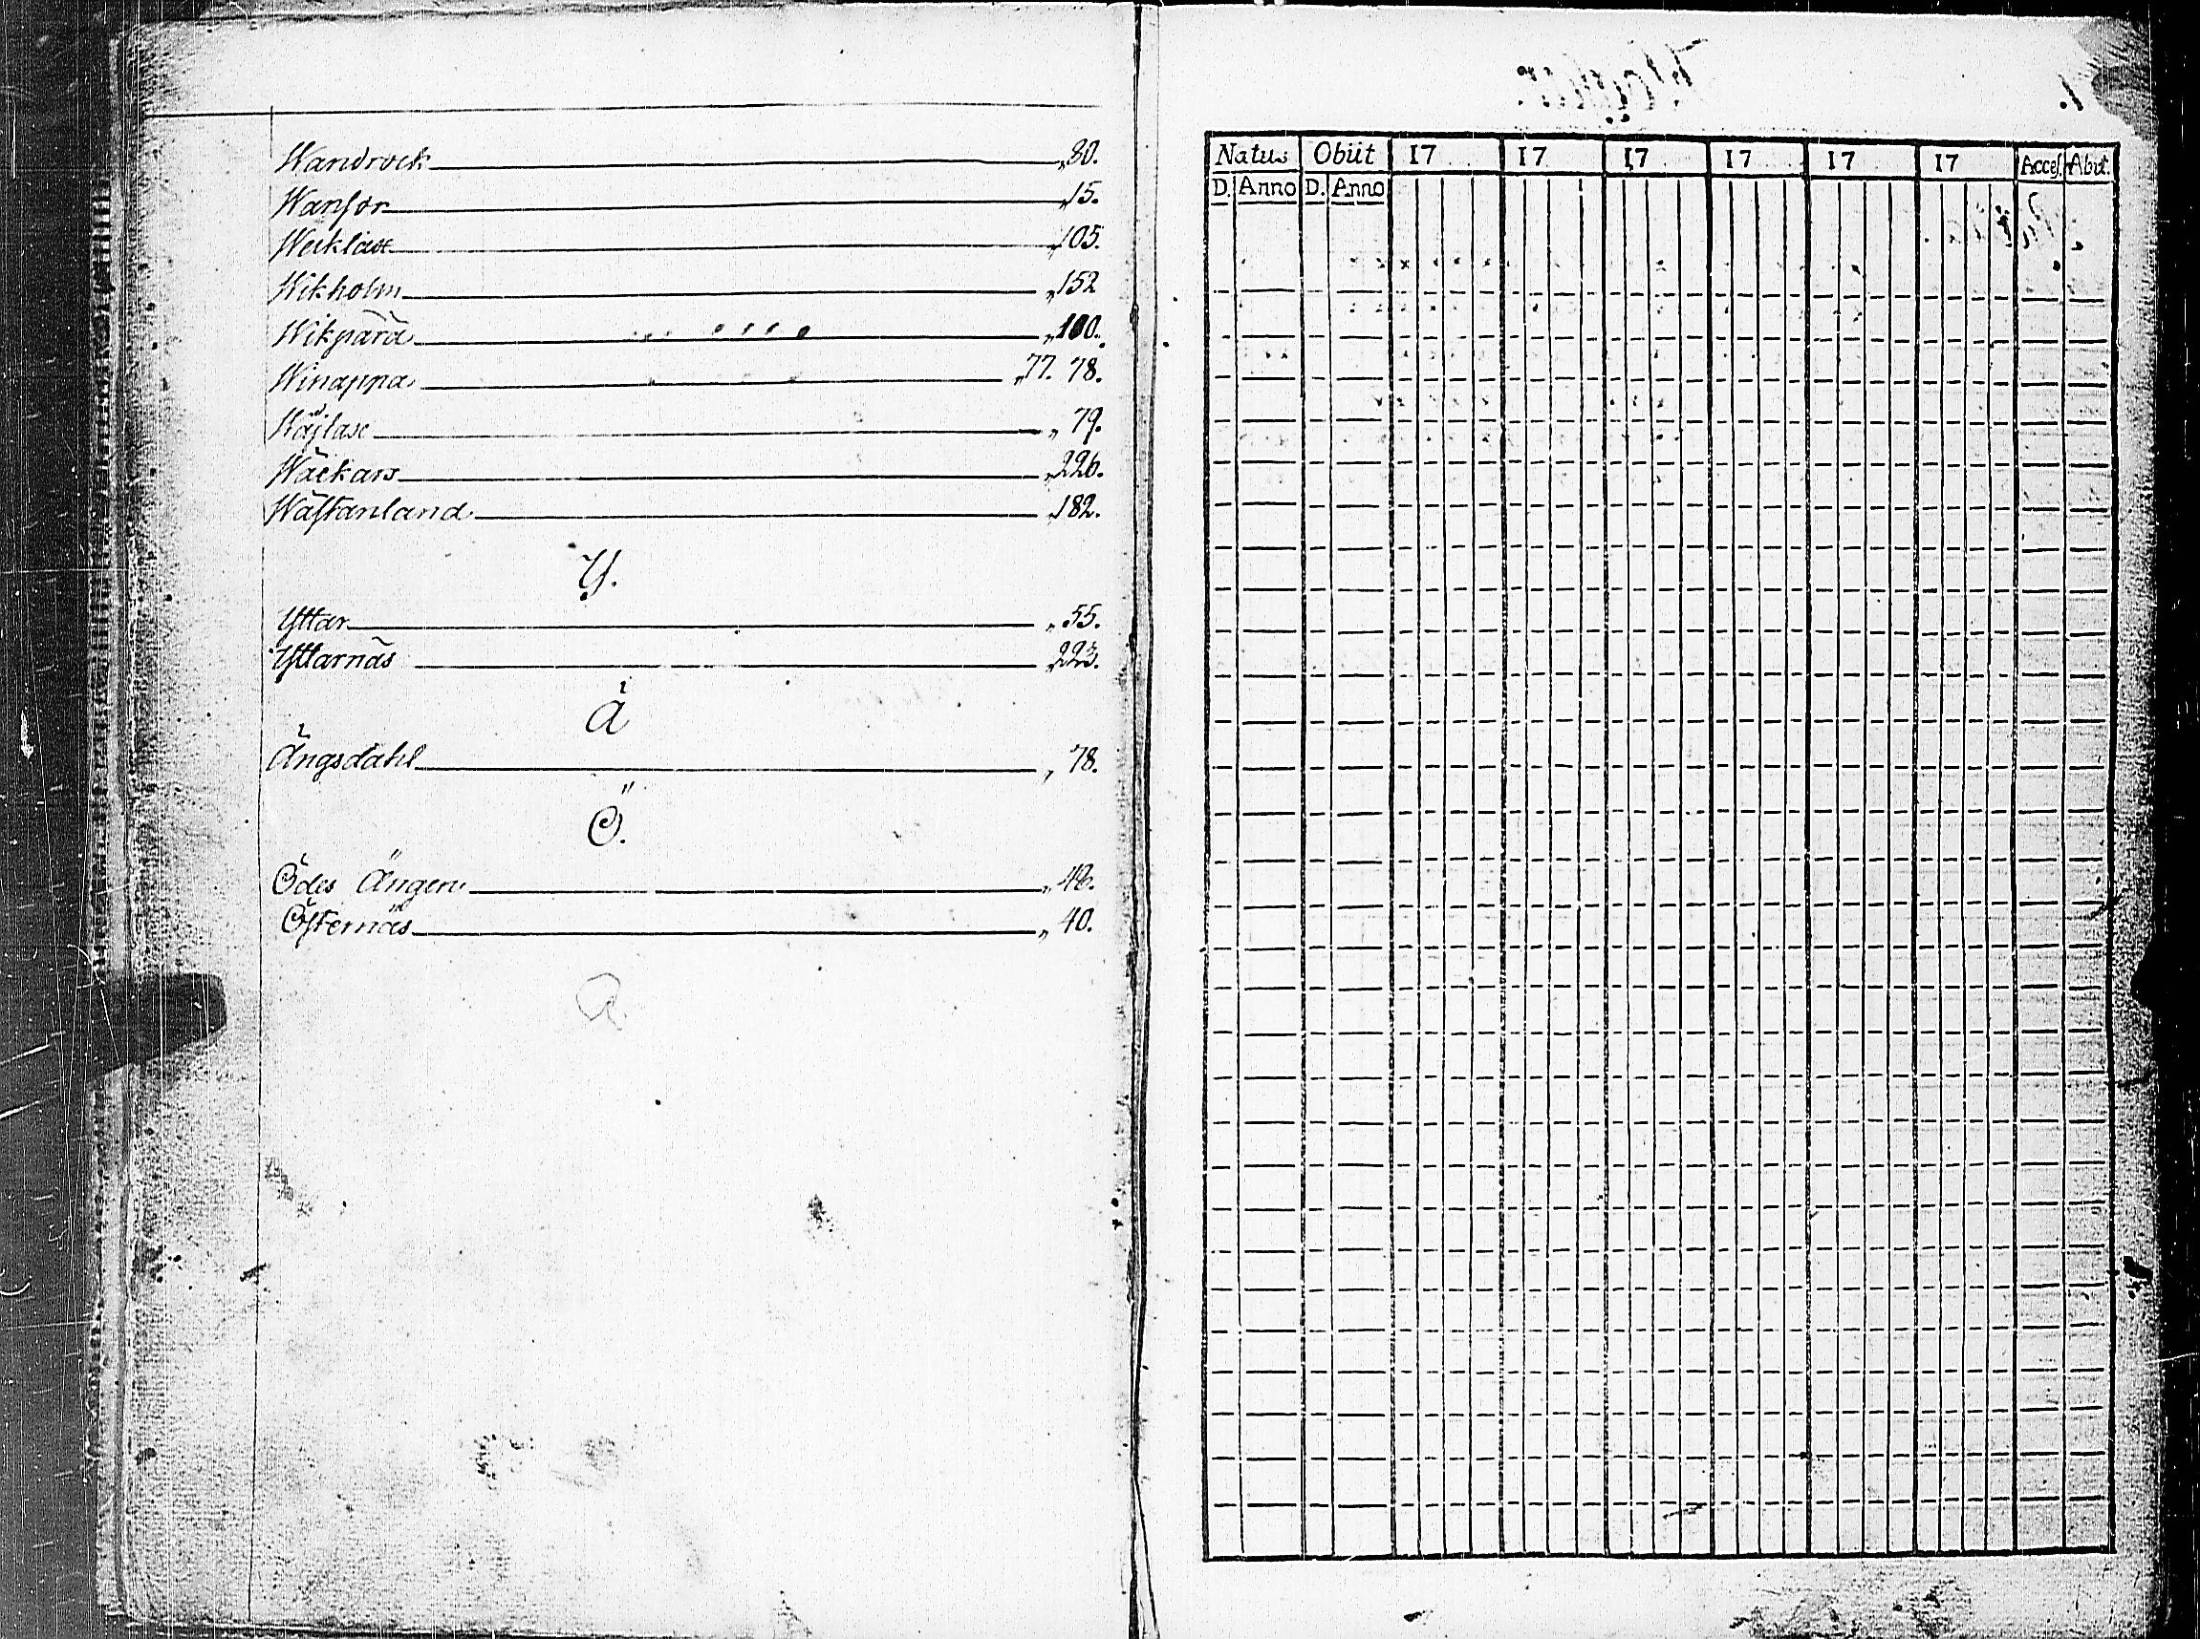 Wandrock „80.
Wanfor „15.
Weiklax „105.
Wikholm „152
Wikpärä „100.
Winappa „77. 78.
Wäjlax „ 79.
Wäckars „226.
Wästanland „182.
Y.
Yttar „ 55.
Yttarnäs 223.
Ä
Ängsdahl „ 78.
Ö.
Ödes Ängen „ 48.
Östernäs „ 40.
1.
Natus Obiit 17 17 17 17 17 17 Acces. Abiit.
D. Anno D. Anno